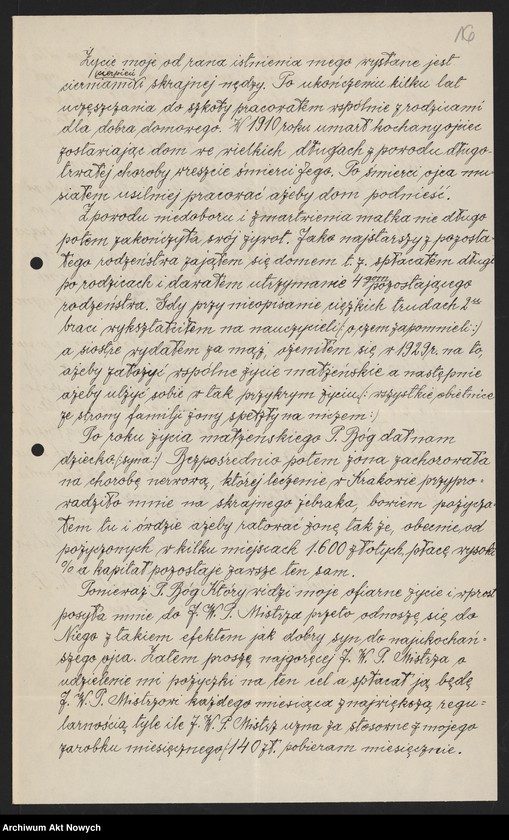 16
Życie moje od rana istnienia mego wysłane jest
cierpień
cierniami skrajnej nędzy. Po ukończeniu kilku lat
uczęszczania do szkoły pracowałem wspólnie z rodzicami
dla dobra domowego. W 1910 roku umarł kochany ojciec
zostawiając dom we wielkich długach z powodu długo-
trwałej choroby wreszcie śmierci Jego. Po śmierci ojca mu-
siałem usilniej pracować ażeby dom podnieść.
Z powodu niedoboru i zmartwienia matka nie długo
potem zakończyła swój żywot. Jako najstarszy z pozosta-
łego rodzeństwa zająłem się domem t. z. spłacałem długi
po rodzicach i dawałem utrzymanie 4 pozostającego
rodzeństwa. Gdy przy nieopisanie ciężkich trudach 2
braci wykształciłem na nauczycieli /: o czem zapomnieli :/
a siostrę wydałem za mąż, ożeniłem się w 1929 r. na to,
ażeby założyć wspólne życie małżeńskie a następnie
ażeby ulżyć sobie w tak przykrym życiu /: wszystkie obietnice
ze strony familji żony spełzły na niczem :/
Po roku życia małżeńskiego P. Bóg dał nam
dziecko /: syna :/ Bezpośrednio potem żona zachorowała
na chorobę nerwową, której leczenie w Krakowie przypro-
wadziło mnie na skrajnego żebraka, bowiem pożycza-
łem tu i ówdzie ażeby ratować żonę tak że, obecnie od
pożyczonych w kilku miejscach 1.600 złotych, płacę wysoki
% a kapitał pozostaje zawsze ten sam.
Ponieważ P. Bóg Który widzi moje ofiarne życie i wprost
posyła mnie do J. W. P. Mistrza przeto odnoszę się do
Niego z takiem efektem jak dobry syn do najukochań-
szego ojca. Zatem proszę najgoręcej J. W. P. Mistrza o
udzielenie mi pożyczki na ten cel a spłacał ją będę
J. W. P. Mistrzowi każdego miesiąca z największą regu-
larnością tyle ile J. W. P. Mistrz uzna za stosowne z mojego
zarobku miesięcznego /: 140 zł. pobieram miesięcznie.
Archiwum Akt Nowych